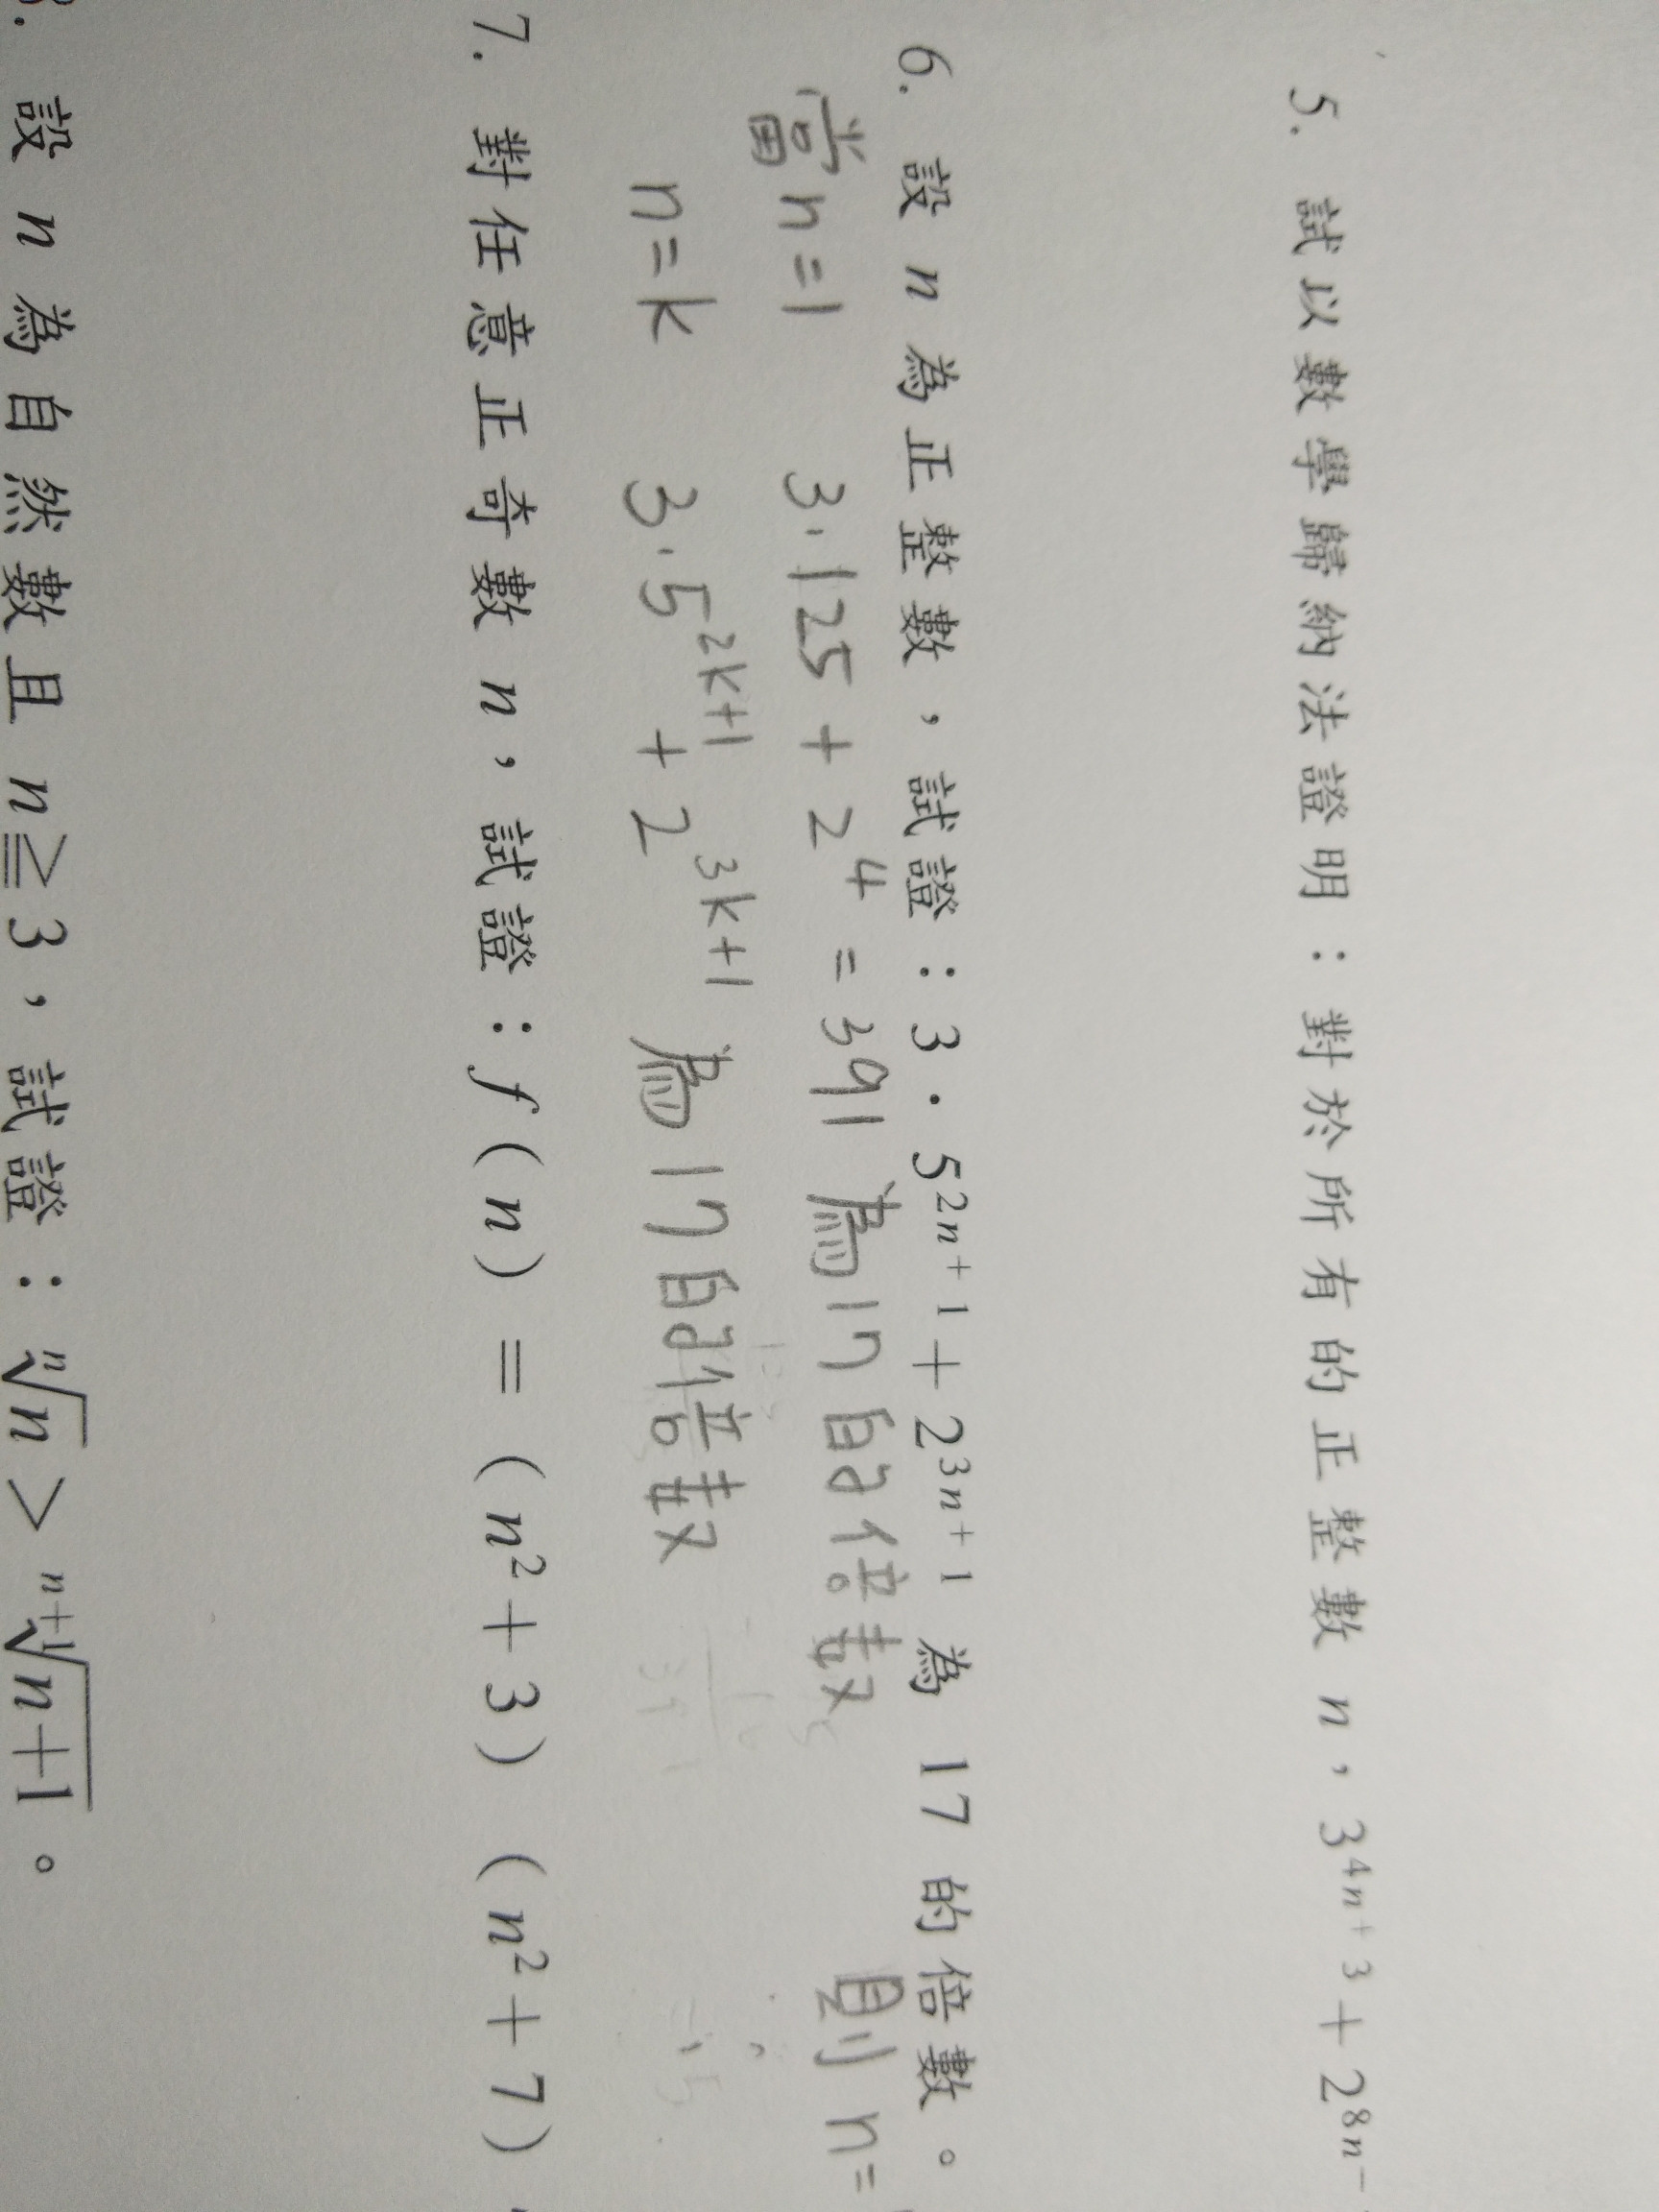 5. 試以數學歸納法證明:對於所有的正整數 n,3^{4n+3}+2^{8n-
6. 設 n 為正整數,試證:3·5^{2n+1}+2^{3n+1} 為 17 的倍數。
當n=1 3·125+2^4=391 為17的倍數 則n=
n=k 3·5^{2k+1}+2^{3k+1} 為17的倍數
7. 對任意正奇數 n,試證:f(n)=(n²+3)(n²+7)
設 n 為自然數且 n≧3,試證:ⁿ√n > ⁿ⁺¹√n+1。